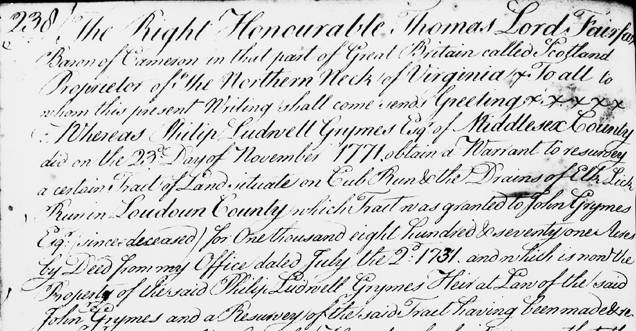 238 The Right Honourable Thomas Lord Fairfax
Baron of Cameron in that part of Great Britain called Scotland
Proprietor of the Northern Neck of Virginia & To all to
whom this present Writing shall come sends Greeting x x x x x
Whereas Philip Ludwell Grymes Esqr. of Middlesex County
did on the 23d. Day of November 1771, obtain a Warrant to resurvey
a certain Tract of Land situate on Cub Run & the Drains of Elk Lick
Run in Loudoun County which Tract was granted to John Grymes
Esqr. (since deceased) for One thousand eight hundred & seventy one Acres
by Deed from my Office dated July the 2d. 1731. and which is now the
Property of the said Philip Ludwell Grymes Heir at Law of the said
John Grymes and a Resurvey of the said Tract having been made & re